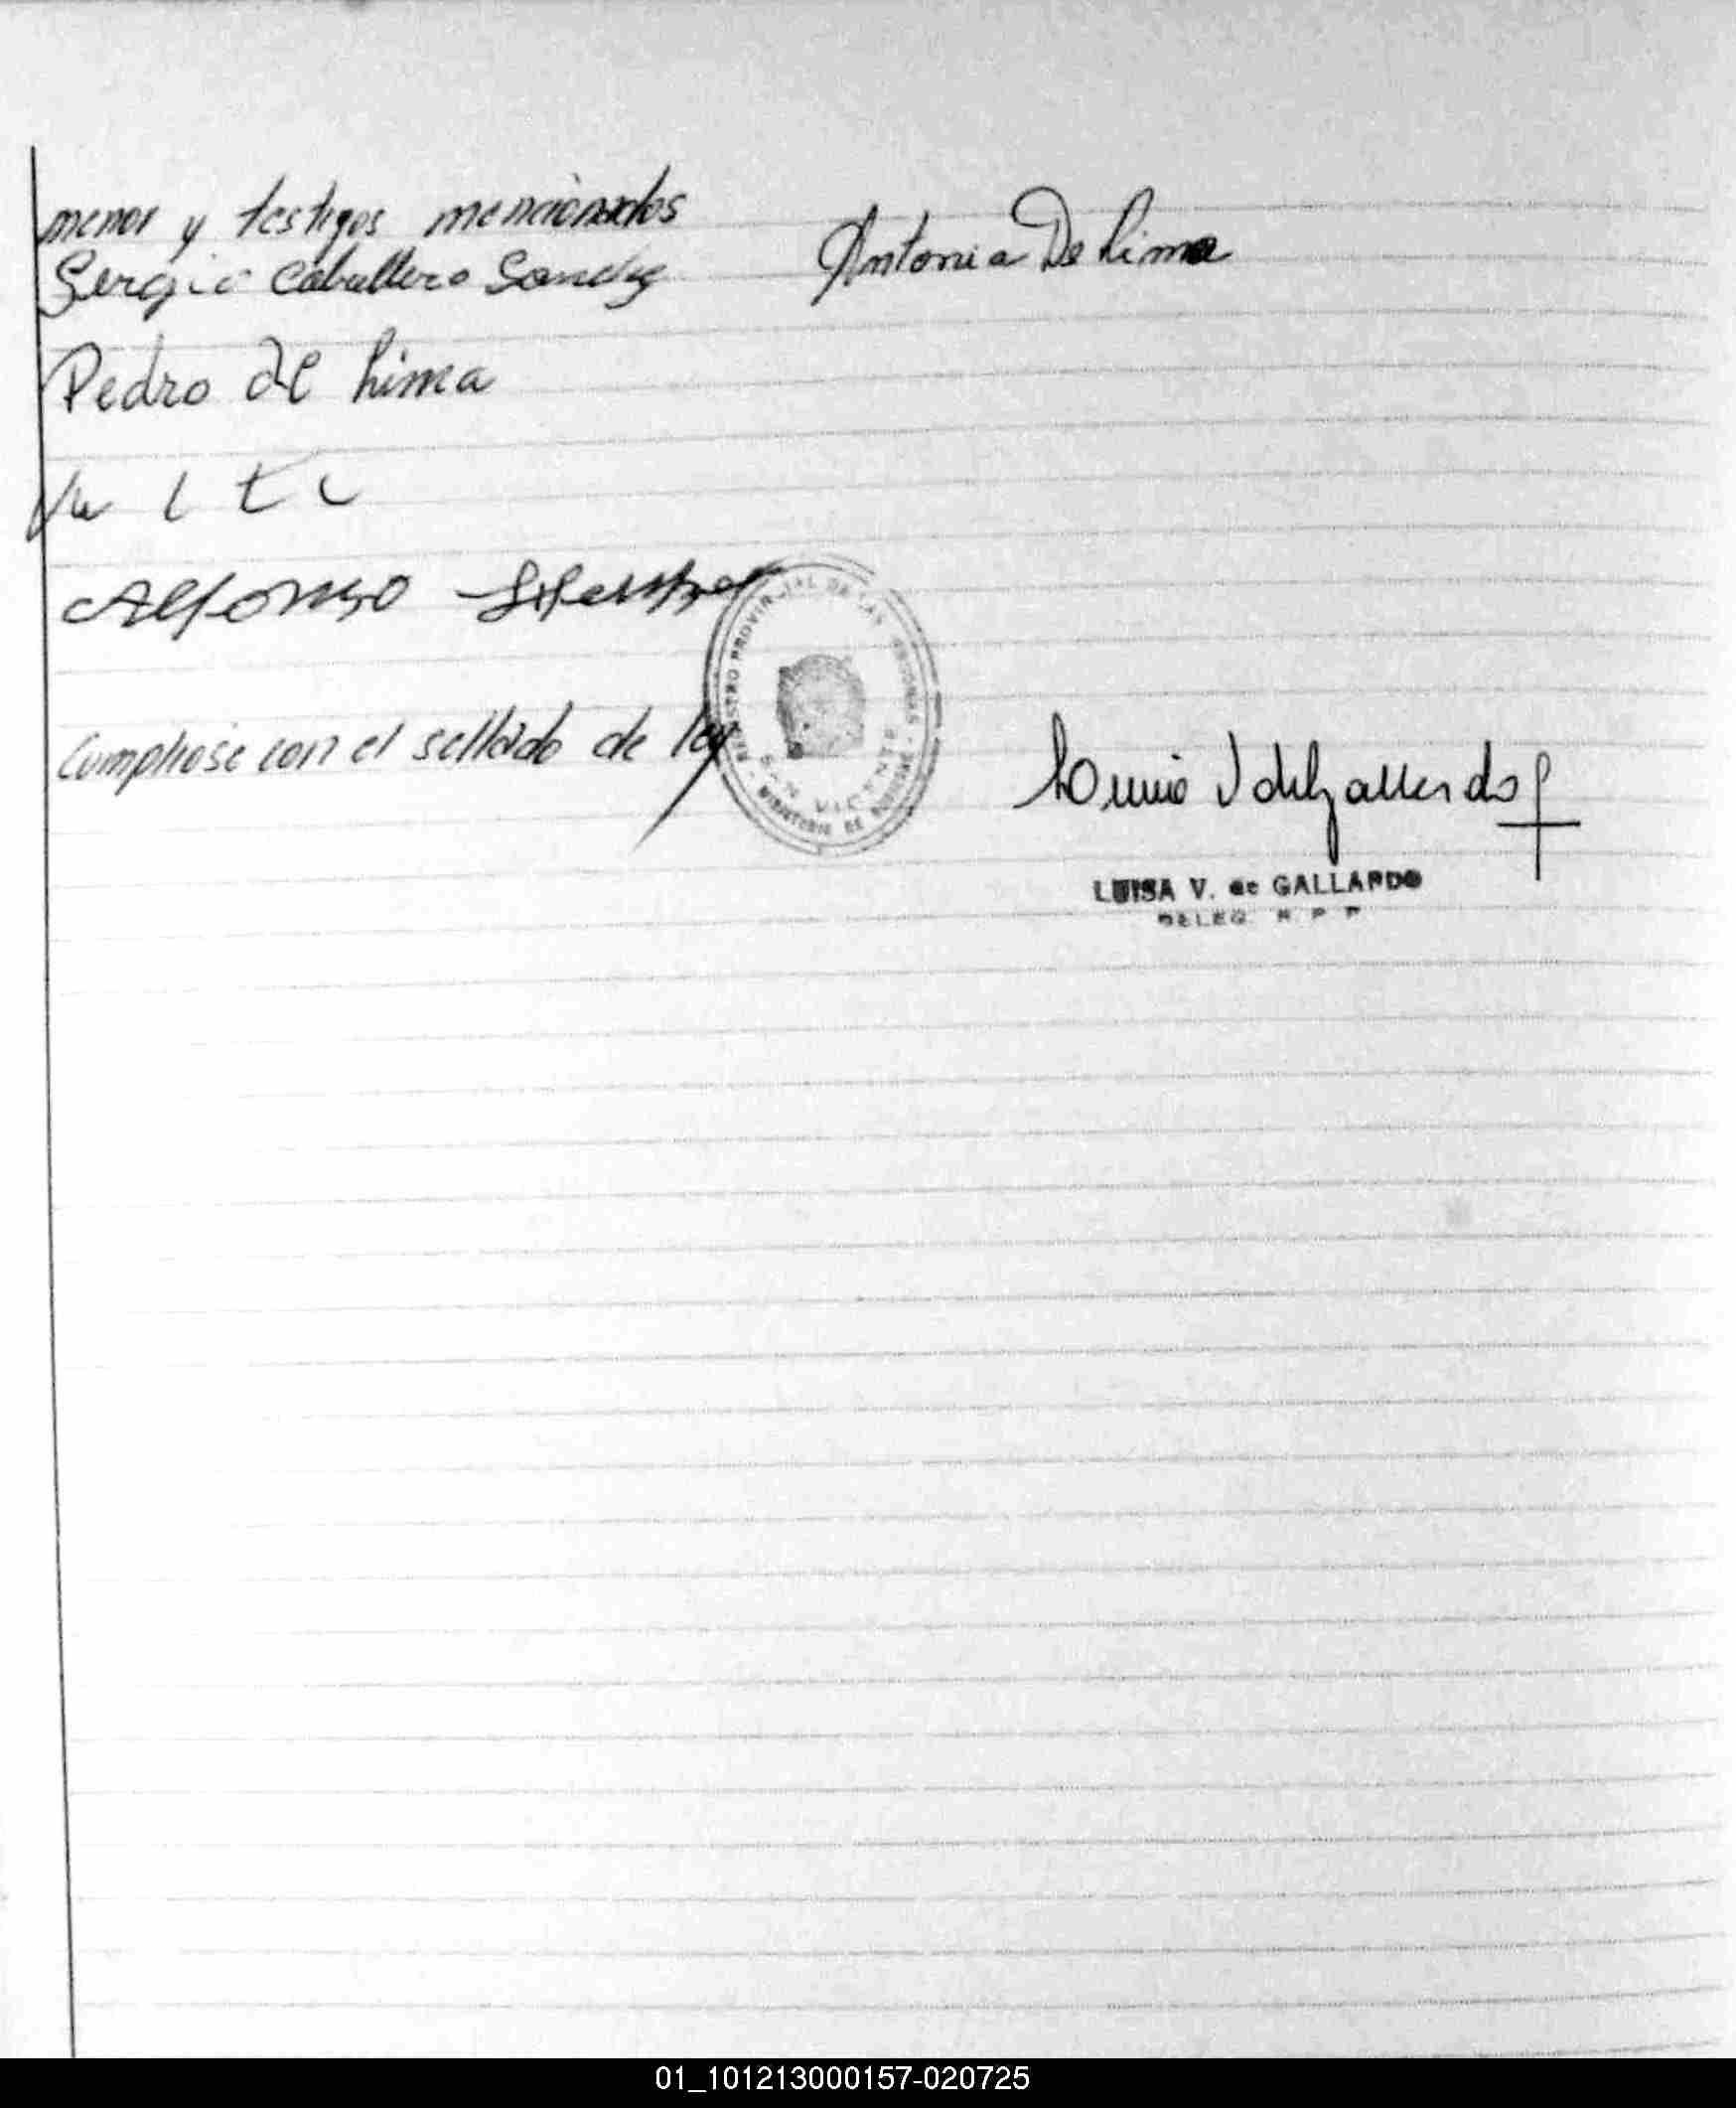 menor y testigos mencionados
Sergio Caballero Sanchez
Antonia De Lima
Pedro de Lima
Alfonso
Cumpliose con el sellado de ley
REGISTRO PROVINCIAL DE LAS PERSONAS
SAN VICENTE
MINISTERIO DE
LUISA V. de GALLARDO
DELEG. R P P
01_101213000157-020725